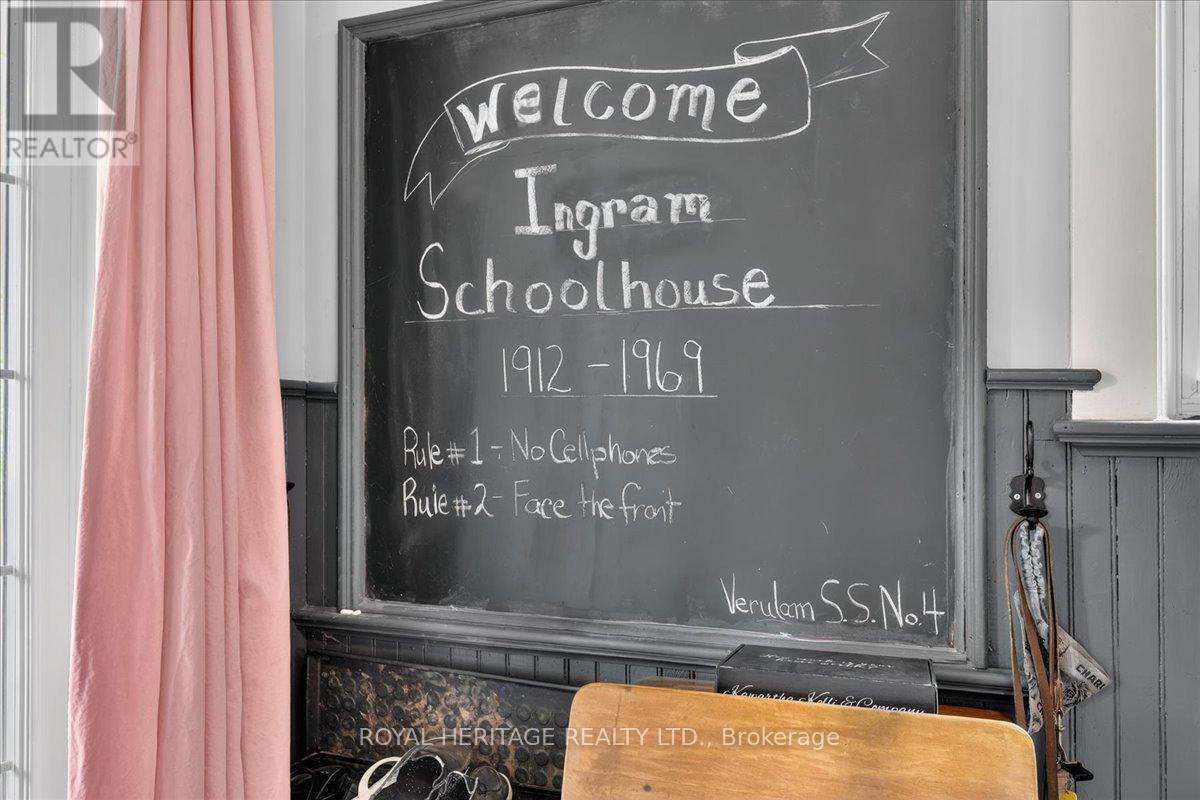 R
REALTOR®
Welcome
Ingram
Schoolhouse
1912 - 1969
Rule #1 - No Cellphones
Rule #2 - Face the front
Verulam S.S. No. 4
& Company
CHARL
ROYAL HERITAGE REALTY LTD., Brokerage